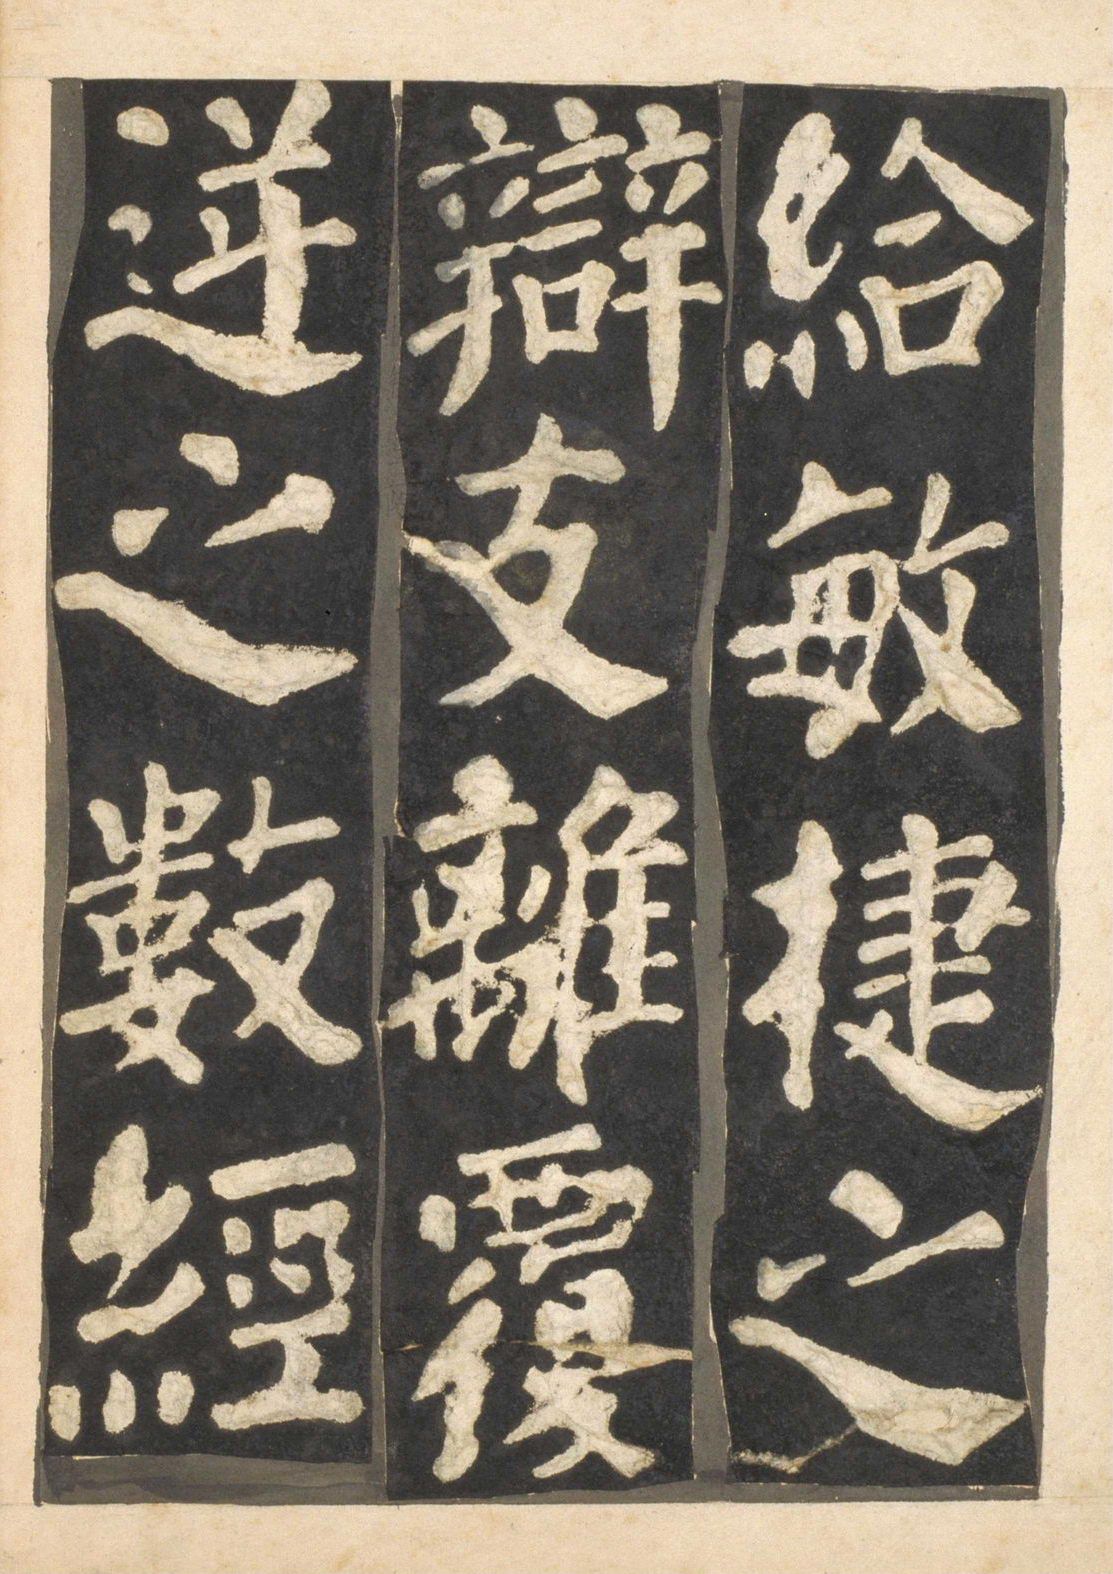 給敏捷之
辯支離覆
逆之數經